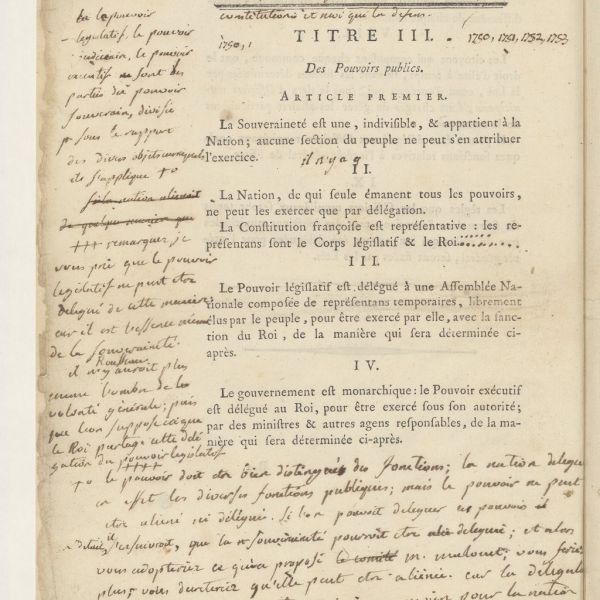 constitution et non que la défen.
1790, 1
TITRE III.
1790, 1791, 1792, 1793
Des Pouvoirs publics.
ARTICLE PREMIER.
La Souveraineté est une, indivisible, & appartient à la
Nation; aucune section du peuple ne peut s'en attribuer
l'exercice.
il n'y a q
II.
La Nation, de qui seule émanent tous les pouvoirs,
ne peut les exercer que par délégation.
La Constitution françoise est représentative : les re-
présentans sont le Corps législatif & le Roi.
III.
Le Pouvoir législatif est délégué à une Assemblée Na-
tionale composée de représentans temporaires, librement
élus par le peuple, pour être exercé par elle, avec la sanc-
tion du Roi, de la manière qui sera déterminée ci-
après.
IV.
Le gouvernement est monarchique : le Pouvoir exécutif
est délégué au Roi, pour être exercé sous son autorité;
par des ministres & autres agens responsables, de la ma-
nière qui sera déterminée ci-après.
le pouvoir
législatif, le pouvoir
judiciaire, le pouvoir
executif ne sont des
parties du pouvoir
souverain, divisé
sous le rapport
des divers objets auxquels
ils s'applique
si la nation aliénoit
de quelque maniere que
+++ remarquez, je
vous prie que le pouvoir
legislatif ne peut etre
delegué de cette maniere
car il est l'essence même
de la souveraineté.
Rousseau
il n'y auroit plus
comme l'ombre de la
volonté générale; puis
que l'on suppose ici que
le Roi partage cette délé
gation du pouvoir legislatif
++++
to le pouvoir doit etre bien distingué des fonctions; la nation delegue
en effet les diverses fonctions publiques; mais le pouvoir ne peut
etre aliené ni délégué. Si l'on pouvoit deleguer ces pouvoirs
il s'ensuivroit, que la souveraineté pourroit etre deleguée; et alors
vous adopteriez ce qu'a proposé le comité m. malouet; vous feriez
plus, vous decreteriez qu'elle peut etre aliénée. car la déléga
pouvoir pour la nation